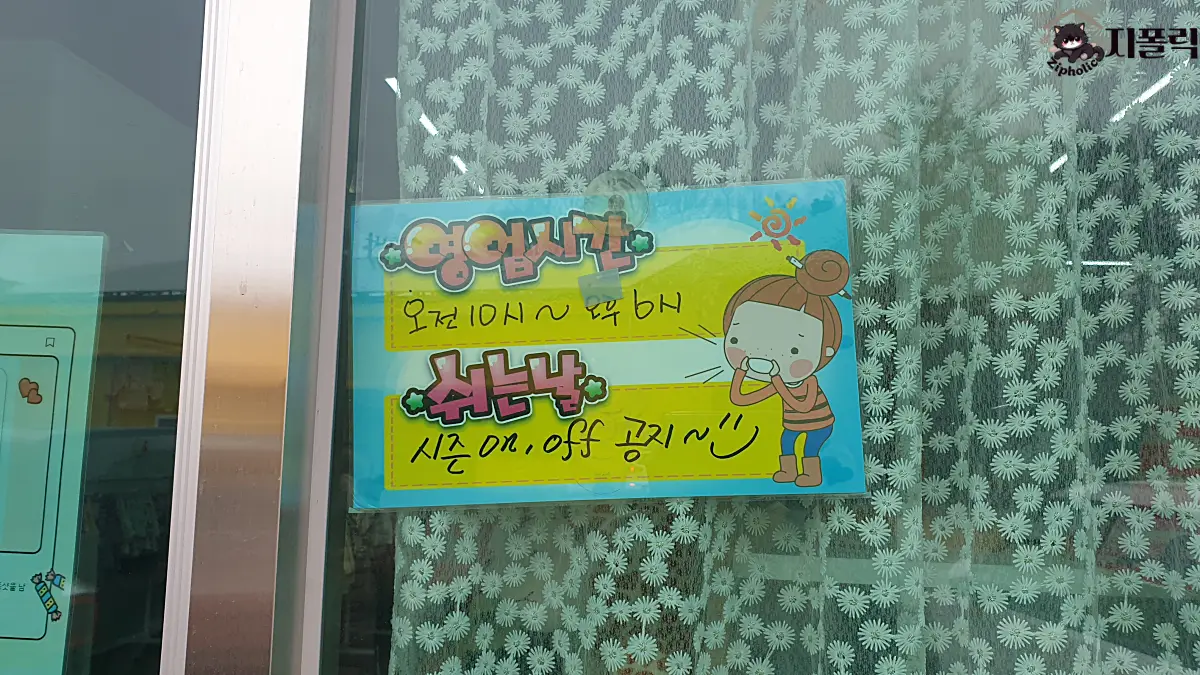 지폴릭
Zipholic
영업시간
오전 10시 ~ 오후 6시
쉬는날
시즌 on, off 공지~